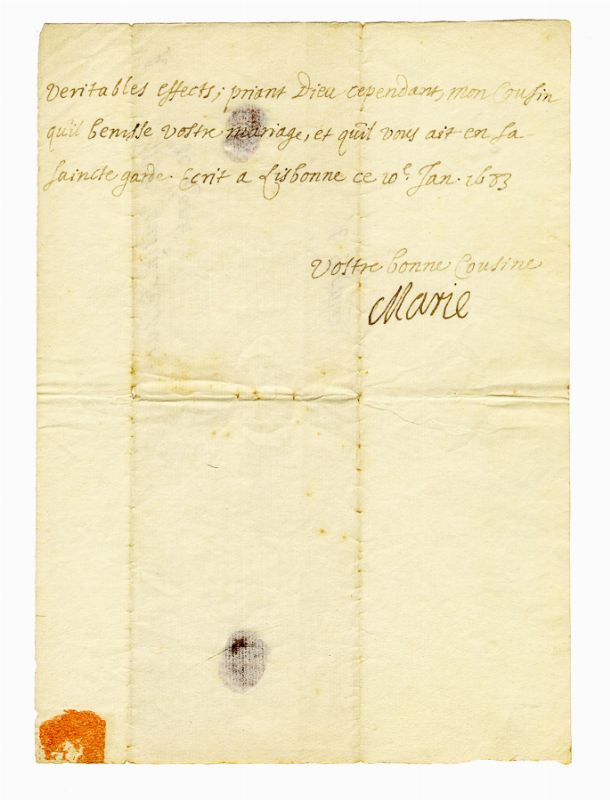 veritables effects; priant Dieu cependant, mon Cousin
qu'il benisse vostre mariage, et qu'il vous ait en sa
saincte garde. Ecrit a Lisbonne ce 10e. Jan. 1683
Vostre bonne Cousine
Marie